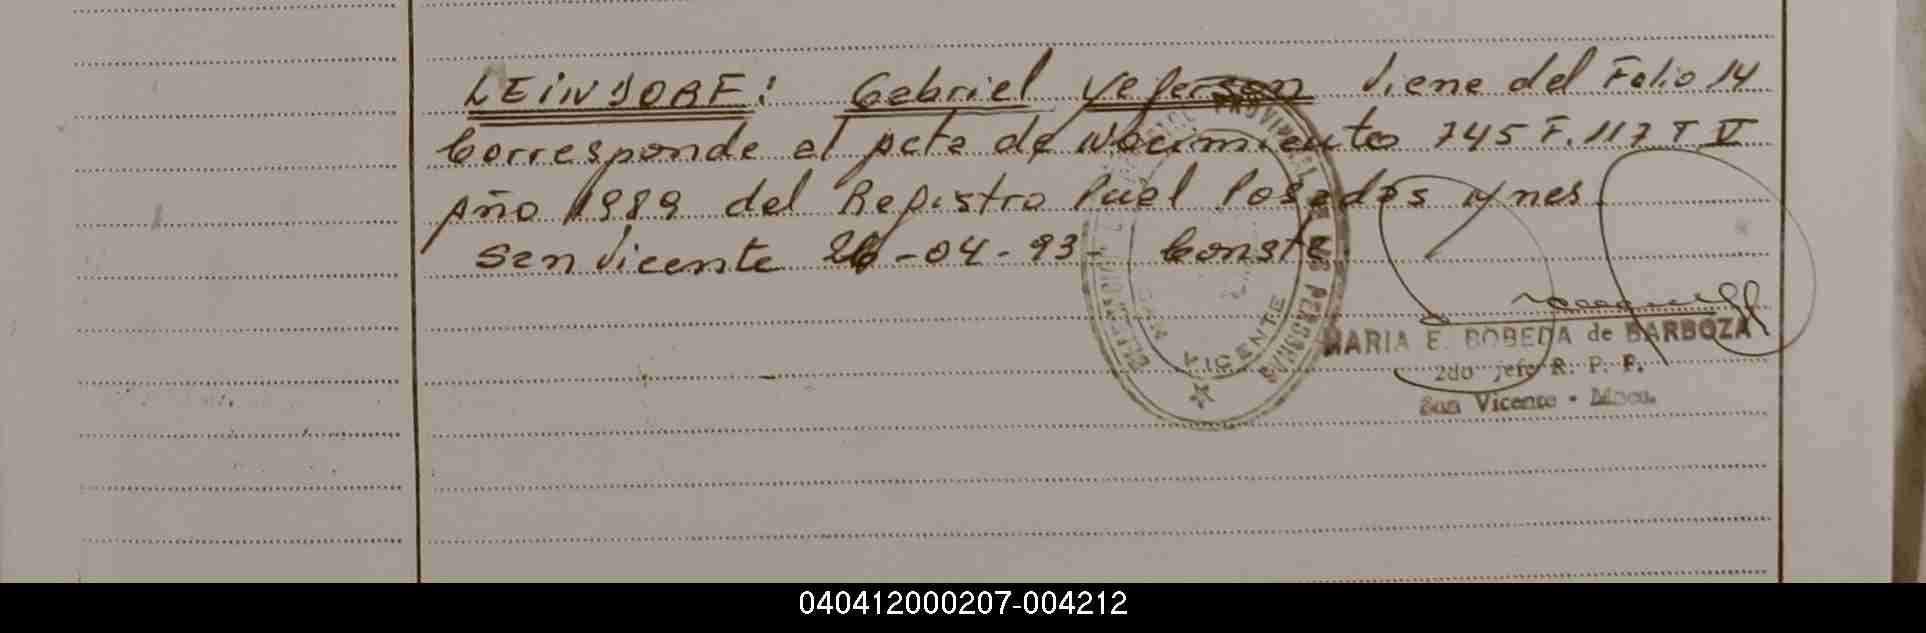 LEINDORF: Gabriel Yeferson Viene del Folio 14
Corresponde al acta de Nacimiento 745 F. 117 T V
Año 1989 del Registro Pcial Posadas Mnes.
San Vicente 26-04-93- Conste.
VICENTE
MARIA E. BOBEDA de BARBOZA
2do jefe R. P. P.
San Vicente - Mnes.
040412000207-004212